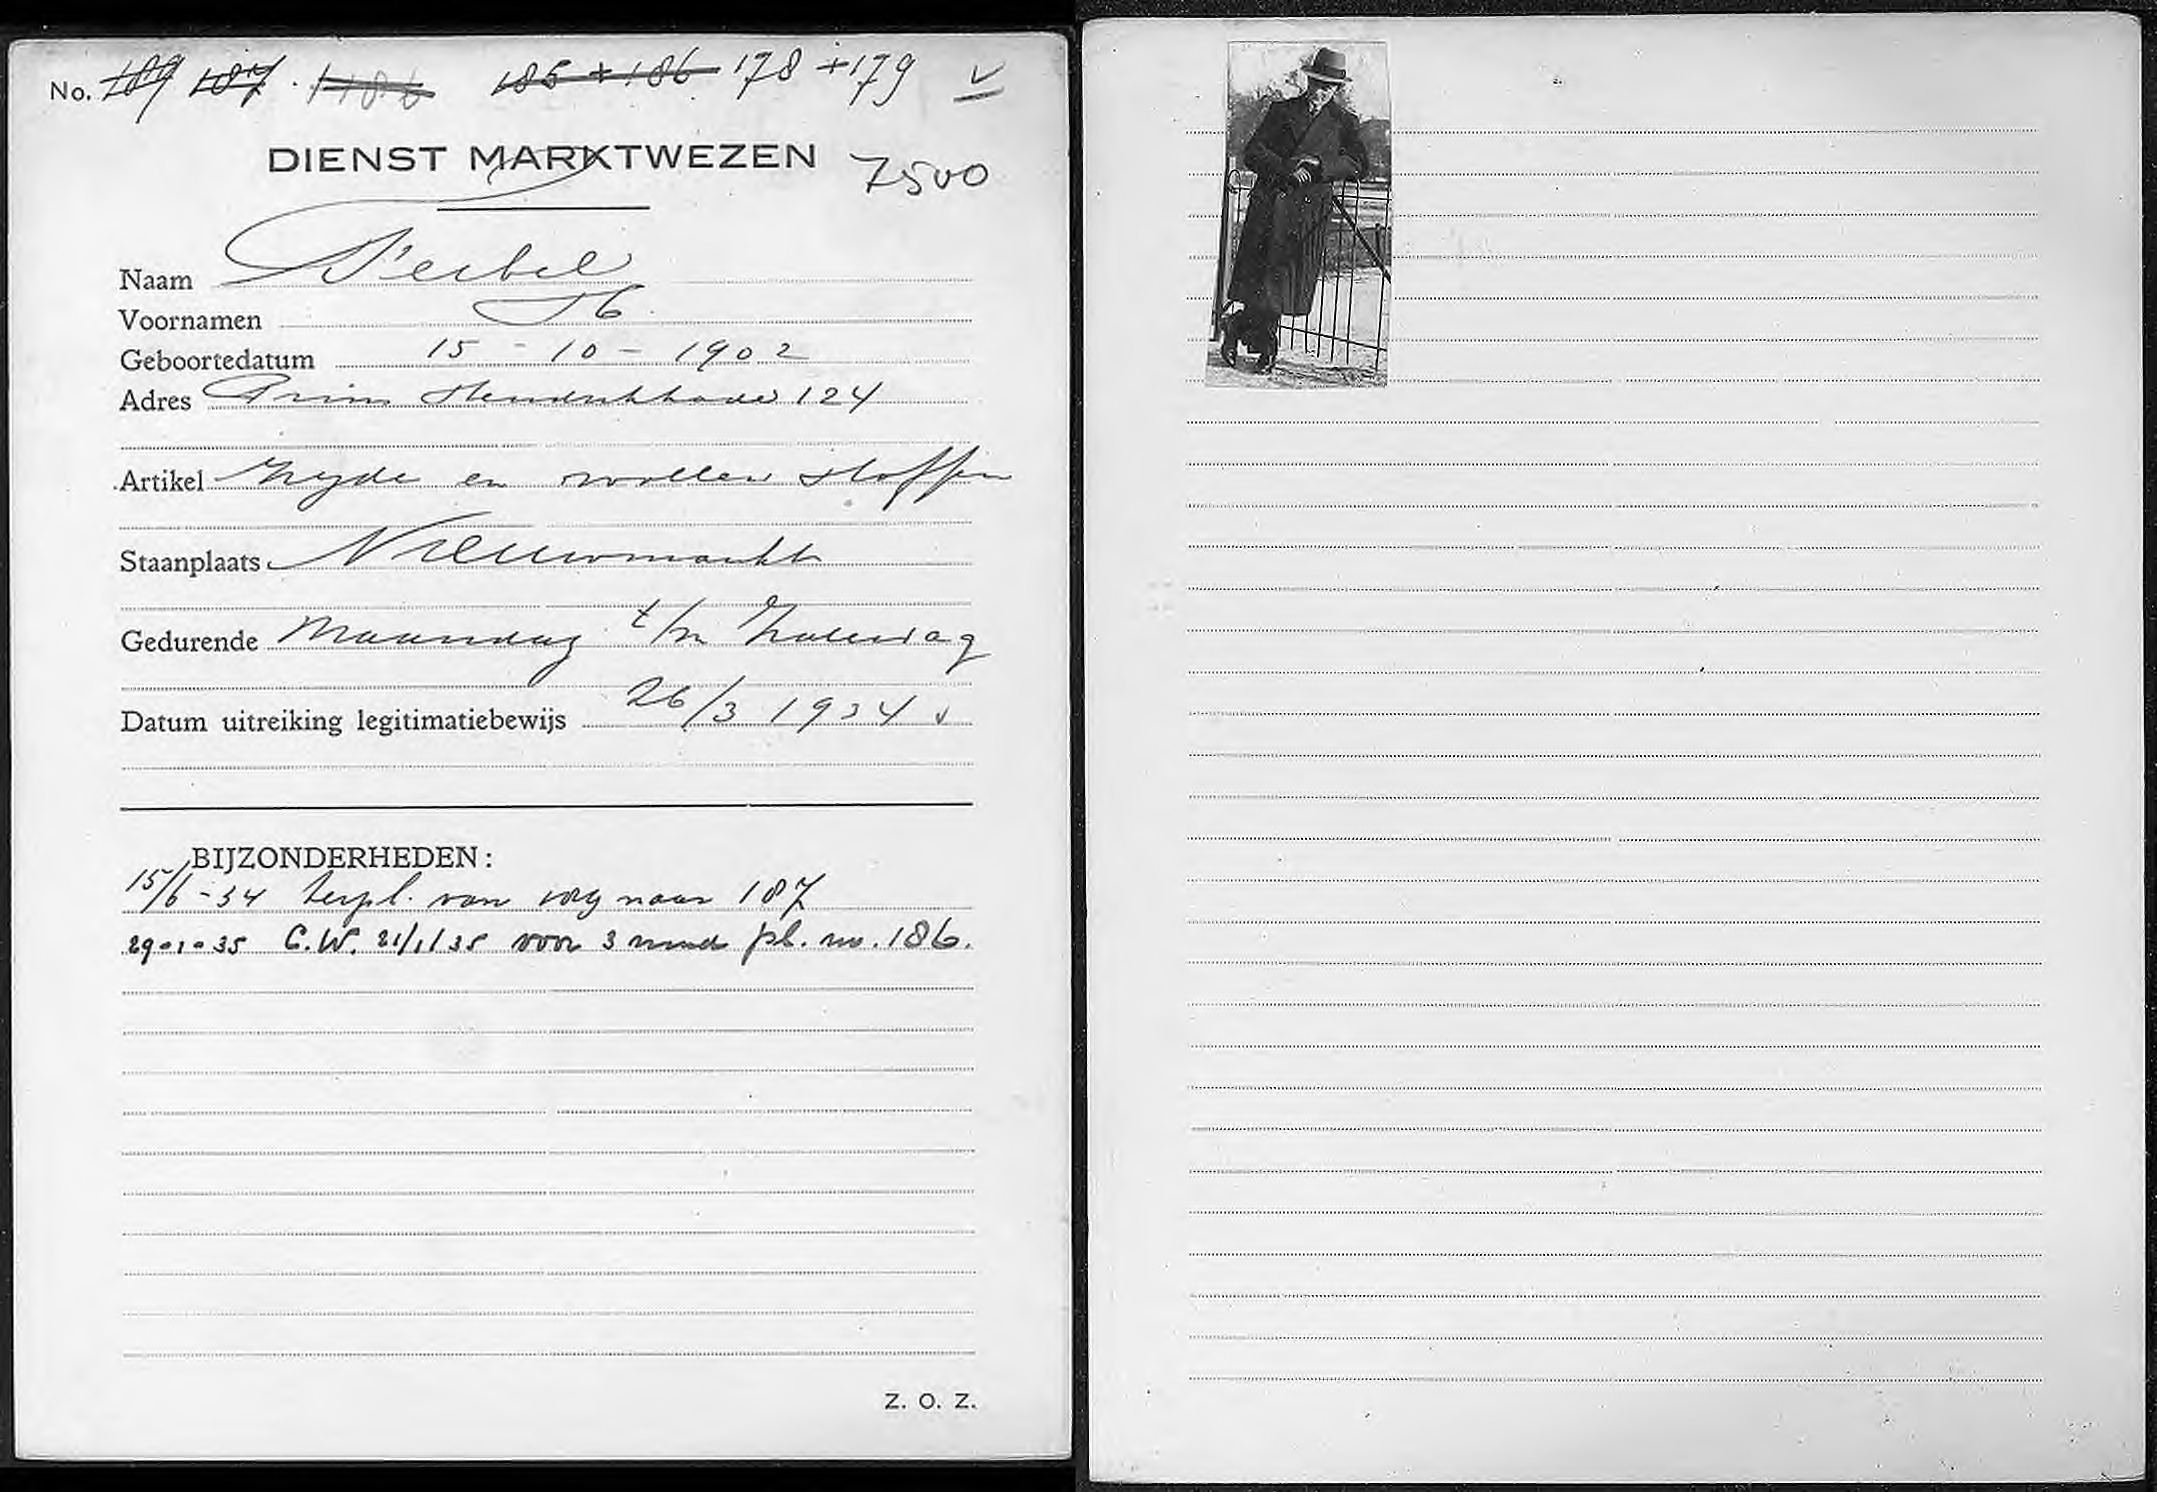 No. 189 187 186 185 + 186 178 + 179 v
DIENST MARKTWEZEN 7500
Naam
Voornamen H.
Geboortedatum 15 - 10 - 1902
Adres Prins Hendrikkade 124
Artikel Zyde en wollen stoffen
Staanplaats Nieuwmarkt
Gedurende Maandag t/m Zaterdag
Datum uitreiking legitimatiebewijs 26/3 1934 v
BIJZONDERHEDEN:
15/6 - 34 verpl. van 189 naar 187
29-1-35 C.W. 21/1/35 voor 3 mnd pl. no. 186.
Z. O. Z.